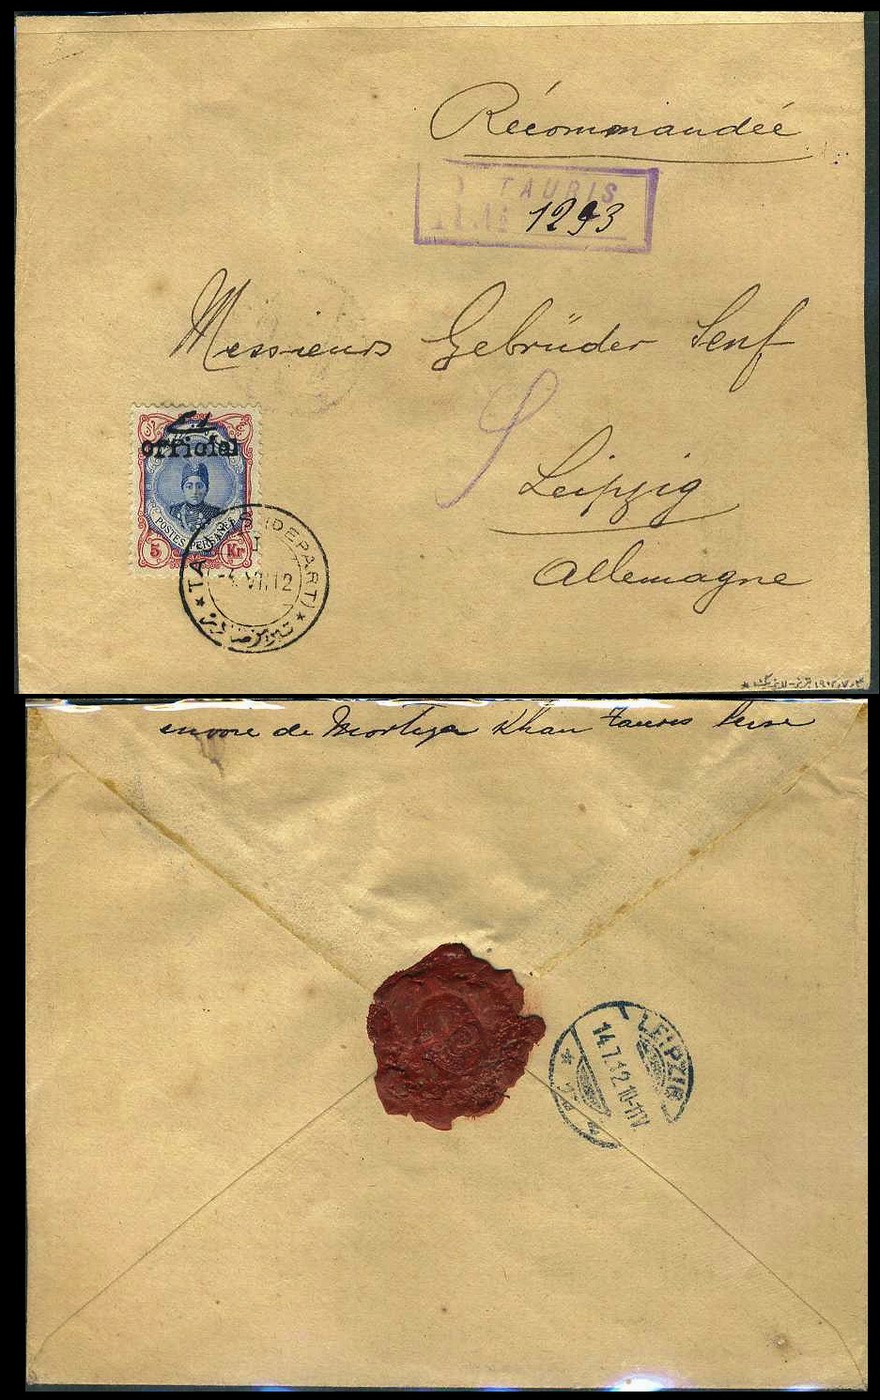 Récommandéé
TAURIS
1293
Messieurs Gebrüder Senf
Leipzig
Allemagne
official
POSTES PERSANES
5 Kr
(DEPART)
VII 12
envoie de Morteza Khan Tauris Perse
LEIPZIG
14.7.12.10-11V.